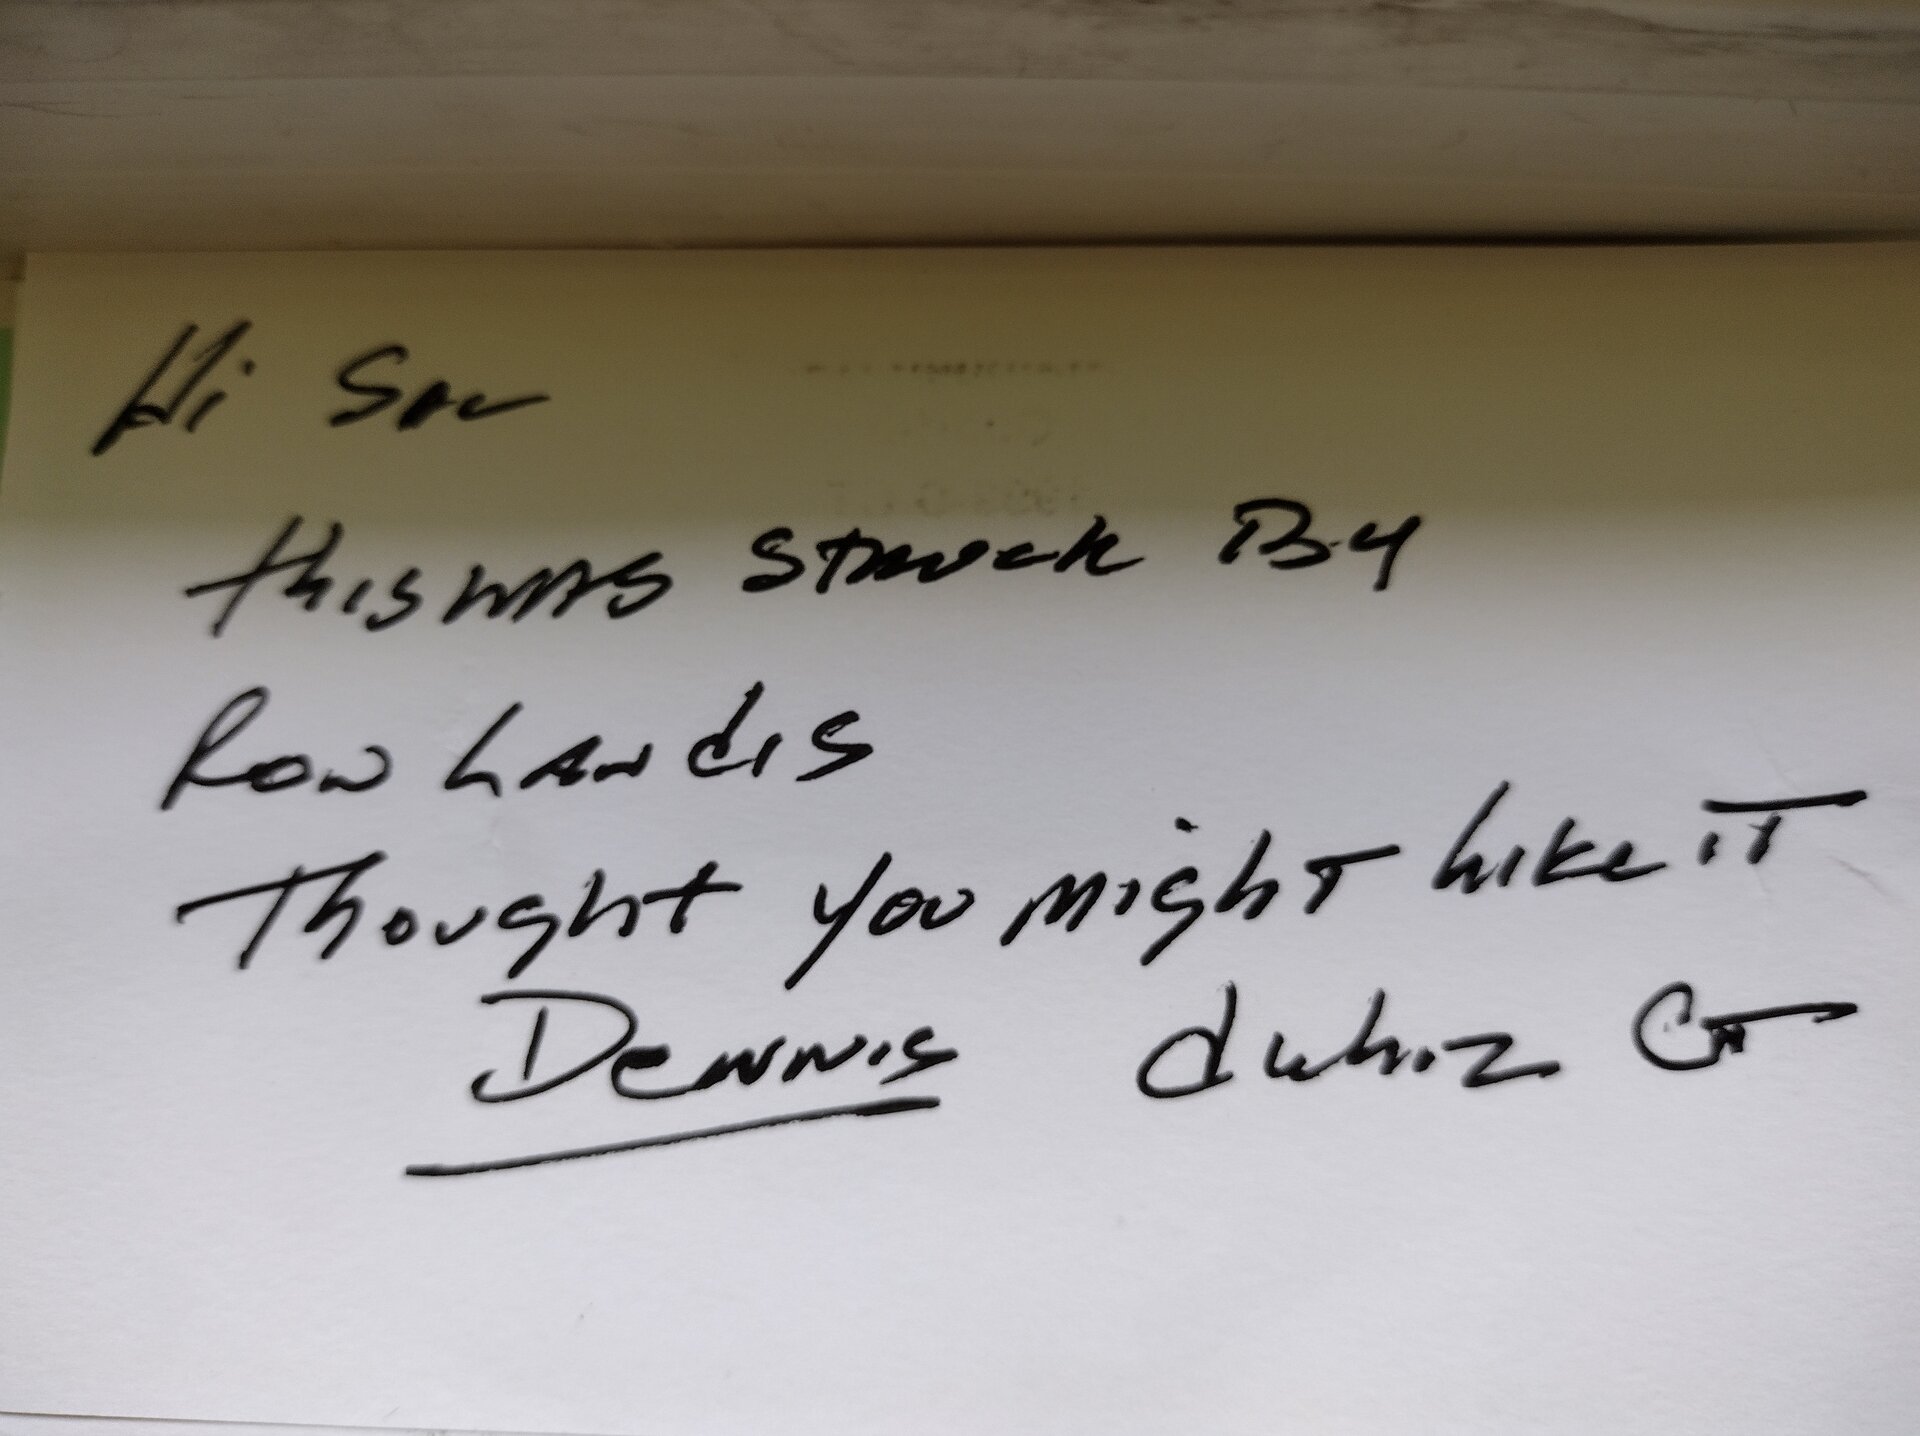 Hi Sal
this was struck By
Ron Landis
Thought you might Like iT
Dennis